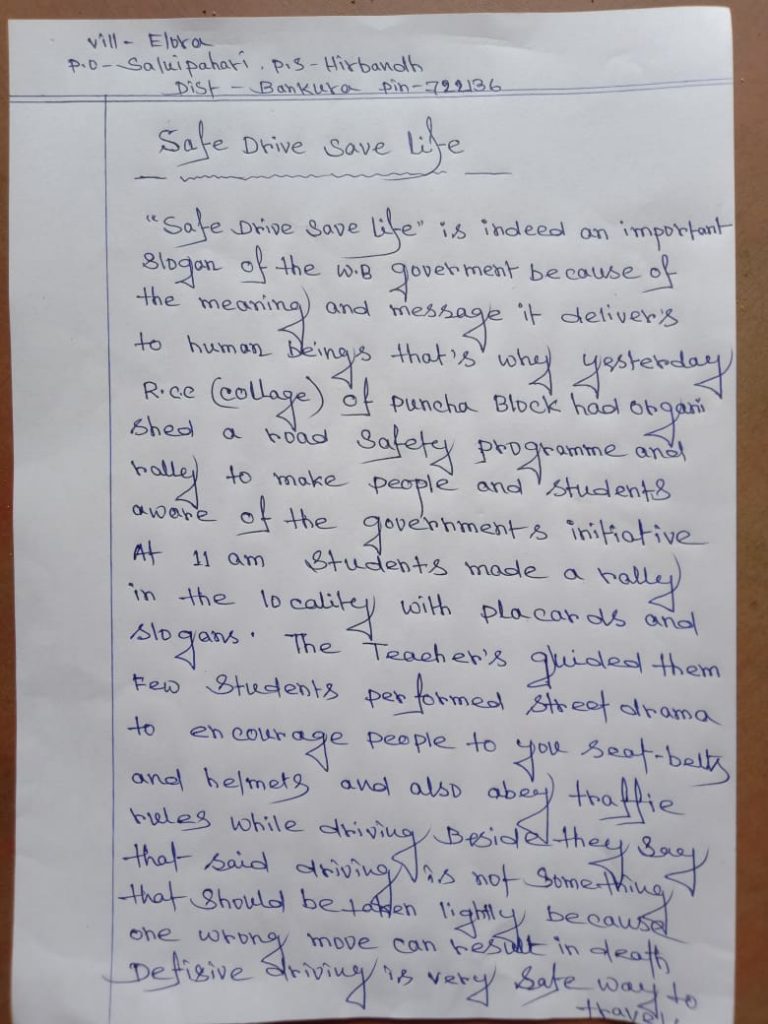 vill - Elora
P.O - Saluipahari. P.S - Hirbandh
Dist - Bankura Pin - 722136
Safe Drive Save Life
"Safe Drive Save Life" is indeed an important
Slogan of the W.B goverment because of
the meaning and message it deliver's
to human beings that's why yesterday
R.cc (collage) of Puncha Block had organi
shed a road safety programme and
ralley to make people and students
aware of the governments initiative
At 11 am Students made a ralley
in the locality with placards and
slogans. The Teacher's guided them
Few Students performed street drama
to encourage people to you seat-belts
and helmets and also abey traffic
rules while driving Beside they say
that said driving is not something
that should be taken lightly because
one wrong move can result in death
Defisive driving is very safe way to
travel.